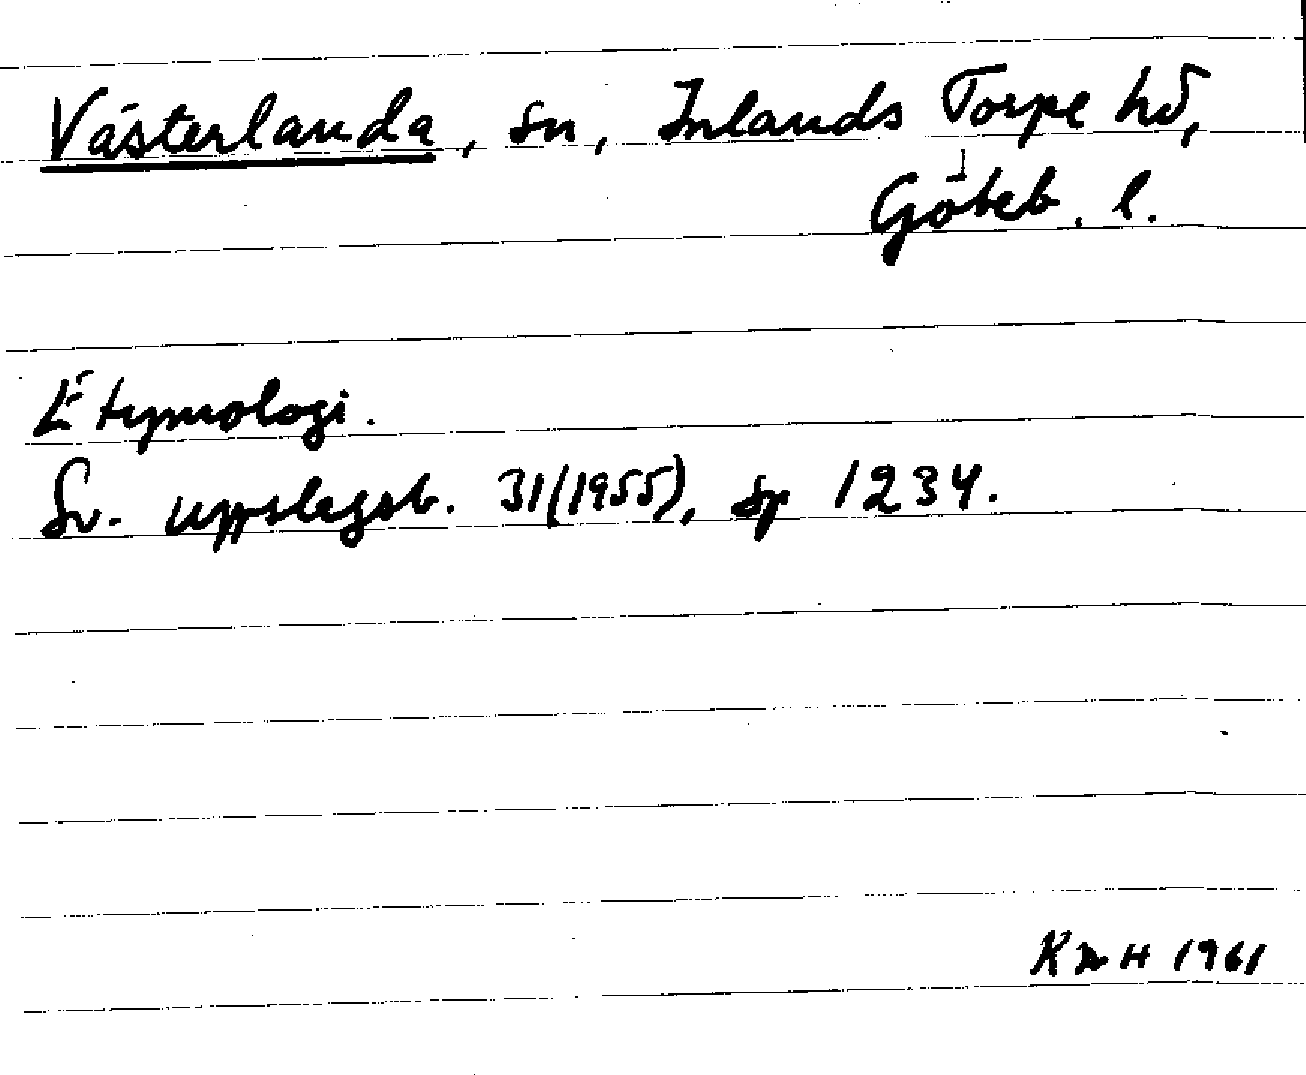 Västerlanda, sn, Inlands Torpe hd,
Göteb. l.
Etymologi.
Sv. uppslagsb. 31(1955), sp 1234.
H 1961